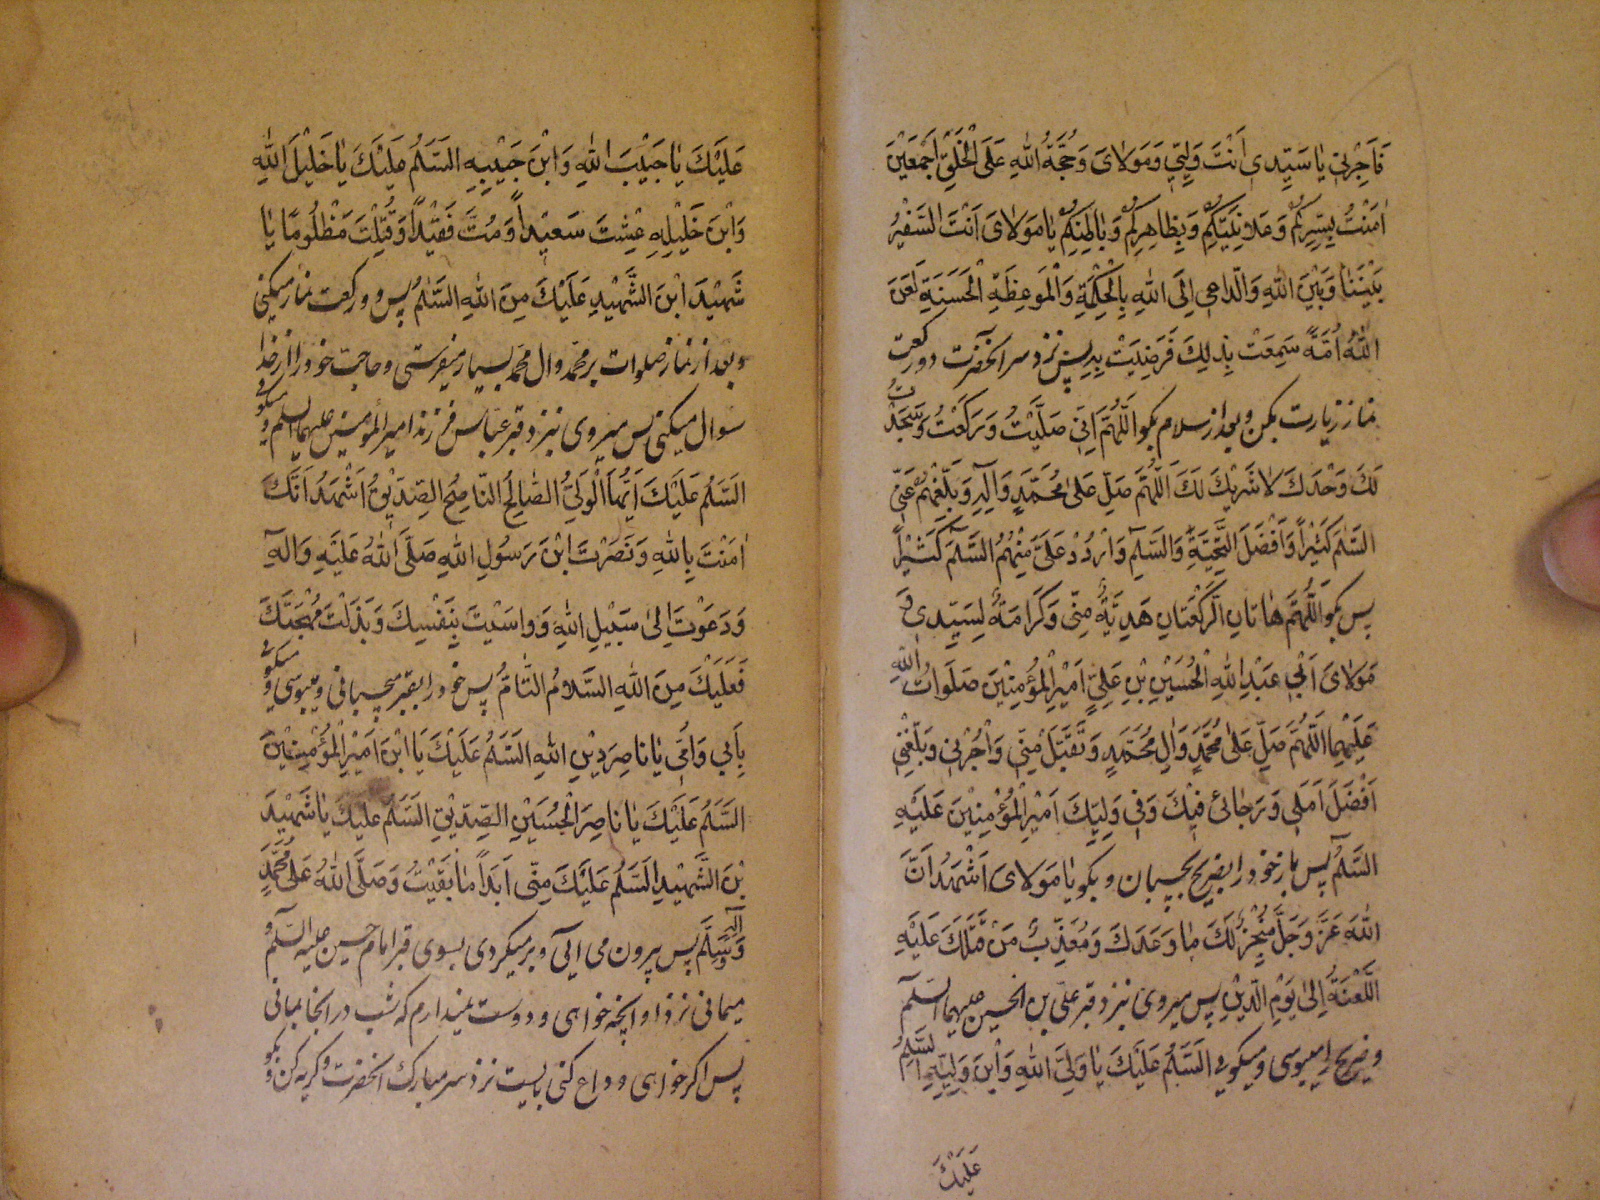 فَاَجِرْنِي يٰا سَيِّدِي اَنْتَ وَلِيِّي وَمَوْلٰايَ وَحُجَّةُ اللهِ عَلَى الْخَلْقِ اَجْمَعِيْنَ
اٰمَنْتُ بِسِرِّكُمْ وَعَلانِيَتِكُمْ وَبِظاهِرِكُمْ وَبٰاطِنِكُمْ يٰا مَوْلٰايَ اَنْتَ السَّفِيْرُ
بَيْنَنٰا وَبَيْنَ اللهِ وَالدّاعِي اِلَى اللهِ بِالْحِكْمَةِ وَالْمَوْعِظَةِ الْحَسَنَةِ لَعَنَ
اللهُ اُمَّةً سَمِعَتْ بِذٰلِكَ فَرَضِيَتْ بِهِ پس نزد سر آنحضرت دو ركعت
نماز زيارت بكن و بعد از سلام بكو اَللّٰهُمَّ اِنِّي صَلَّيْتُ وَرَكَعْتُ وَسَجَدْتُ
لَكَ وَحْدَكَ لٰا شَرِيْكَ لَكَ اَللّٰهُمَّ صَلِّ عَلىٰ مُحَمَّدٍ وَآلِهِ وَبَلِّغْهُمْ عَنِّي
السَّلٰمَ كَثِيْراً وَاَفْضَلَ التَّحِيَّةِ وَالسَّلٰمِ وَارْدُدْ عَلَيَّ مِنْهُمُ السَّلٰمَ كَثِيْراً
پس بكو اَللّٰهُمَّ هٰاتانِ الرَّكْعَتانِ هَدِيَّةٌ مِنِّي وَكَرامَةٌ لِسَيِّدِي وَ
مَوْلٰايَ اَبِي عَبْدِ اللهِ الْحُسَيْنِ بْنِ عَلِيٍّ اَمِيْرِ الْمُؤْمِنِيْنَ صَلَوٰاتُ اللهِ
عَلَيْهِمٰا اَللّٰهُمَّ صَلِّ عَلىٰ مُحَمَّدٍ وَاٰلِ مُحَمَّدٍ وَتَقَبَّلْ مِنِّي وَاْجُرْنِي وَبَلِّغْنِي
اَفْضَلَ اَمَلِي وَرَجٰائِي فِيْكَ وَفِي وَلِيِّكَ اَمِيْرِ الْمُؤْمِنِيْنَ عَلَيْهِ
السَّلٰمُ پس باز خود را بضريح بچسبان و بكو يا مَوْلاى اَشْهَدُ اَنَّ
اللهَ عَزَّ وَجَلَّ مُنْجِزٌ لَكَ مٰا وَعَدَكَ وَمُعَذِّبٌ مَنْ قَتَلَكَ عَلَيْهِ
اللَّعْنَةُ اِلىٰ يَوْمِ الدِّيْنِ پس ميروى بنزد قبر على بن الحسين عليهما السلم
و ضريح را ميبوسى و ميكوئى اَلسَّلٰمُ عَلَيْكَ يٰا وَلِيَّ اللهِ وَابْنَ وَلِيِّهِ اَلسَّلٰمُ
عَلَيْكَ
عَلَيْكَ يٰا حَبِيْبَ اللهِ وَابْنَ حَبِيْبِهِ اَلسَّلٰمُ عَلَيْكَ يٰا خَلِيْلَ اللهِ
وَابْنَ خَلِيْلِهِ عِشْتَ سَعِيْداً وَمُتَّ فَقِيْداً وَقُتِلْتَ مَظْلُوْمًا يٰا
شَهِيْدَ ابْنَ الشَّهِيْدِ عَلَيْكَ مِنَ اللهِ السَّلٰمُ پس دو ركعت نماز ميكنى
و بعد از نماز صلوات بر محمد و ال محمد بسيار ميفرستى و حاجت خود را از خدا
سوال ميكنى پس ميروى بنزد قبر عباس فرزند امير المؤمنين عليهما السلم و ميكوئى
اَلسَّلٰمُ عَلَيْكَ اَيُّهَا الْوَلِيُّ الصّٰالِحُ النّاصِحُ الصِّدِّيْقُ اَشْهَدُ اَنَّكَ
اٰمَنْتَ بِاللهِ وَنَصَرْتَ ابْنَ رَسُوْلِ اللهِ صَلَّى اللهُ عَلَيْهِ وَاٰلِهِ
وَدَعَوْتَ اِلىٰ سَبِيْلِ اللهِ وَوٰاسَيْتَ بِنَفْسِكَ وَبَذَلْتَ مُهْجَتَكَ
فَعَلَيْكَ مِنَ اللهِ السَّلامُ التّٰامُّ پس خود را بقبر ميچسبانى و ميبوسى و ميكوئى
بِاَبِي وَاُمِّي يٰا نٰاصِرَ دِيْنِ اللهِ اَلسَّلٰمُ عَلَيْكَ يَا ابْنَ اَمِيْرِ الْمُؤْمِنِيْنَ
اَلسَّلٰمُ عَلَيْكَ يٰا نٰاصِرَ الْحُسَيْنِ الصِّدِّيْقِ اَلسَّلٰمُ عَلَيْكَ يٰا شَهِيْدَ
بْنَ الشَّهِيْدِ اَلسَّلٰمُ عَلَيْكَ مِنِّي اَبَداً مٰا بَقِيْتُ وَصَلَّى اللهُ عَلىٰ مُحَمَّدٍ
وَاٰلِهِ وَسَلَّمَ پس بيرون مى آيى و بر ميكردى بسوى قبر امام حسين عليه السلم و
ميمانى نزد او آنچه خواهى و دوست نميدارم كه شب در آنجا بمانى
پس اكر خواهى وداع كنى بايست نزد سر مبارك آنحضرت و كريه كن و بكو